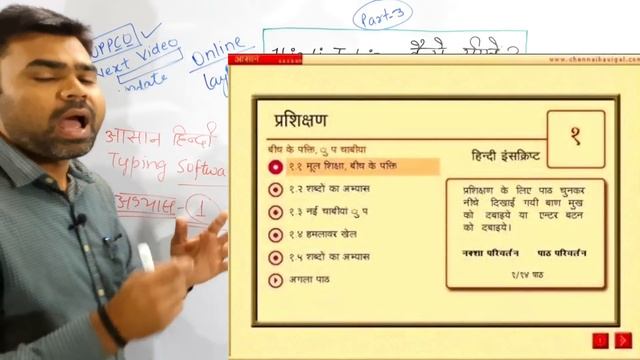 Part-3
UPPCO
Next Video
Online
आसान हिन्दी
Typing Softwa
अभ्यास - 1
आसान
www.chennaikavigal.com
प्रशिक्षण
१
बीच के पक्ति, ु प चाबीया
हिन्दी इंसक्रिप्ट
१.१ मूल शिक्षा, बीच के पक्ति
१.२ शब्दों का अभ्यास
१.३ नई चाबीयां ु प
१.४ हमलावर खेल
१.५ शब्दों का अभ्यास
अगला पाठ
प्रशिक्षण के लिए पाठ चुनकर
नीचे दिखाई गयी बाण मुख
को दबाइये या एन्टर बटन
को दबाइये।
नक्शा परिवर्तन पाठ परिवर्तन
१/१४ पाठ